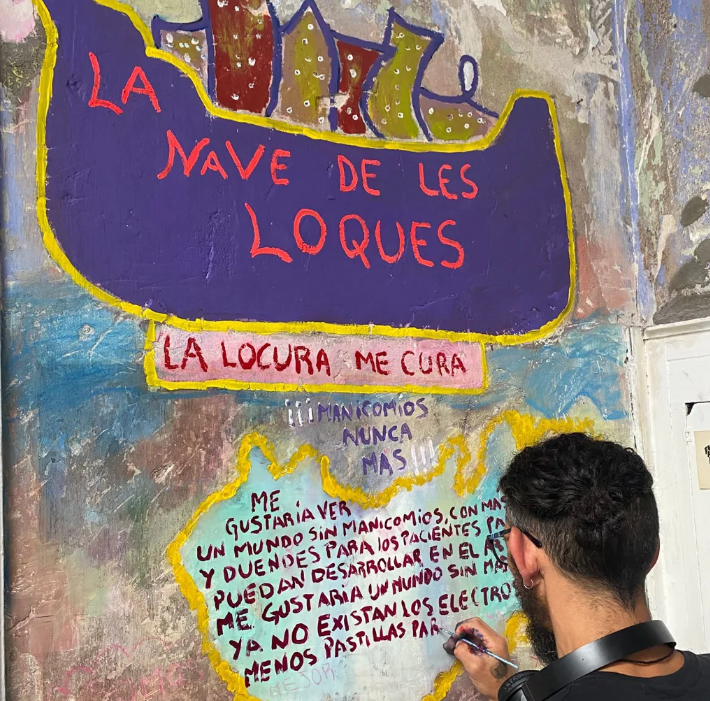 LA
NAVE DE LES
LOQUES
LA LOCURA ME CURA
¡¡¡MANICOMIOS
NUNCA
MAS!!!
ME
GUSTARÍA VER
UN MUNDO SIN MANICOMIOS, CON
Y DUENDES PARA LOS PACIENTES
PUEDAN DESARROLLAR EN EL
ME GUSTARIA UN MUNDO SIN
YA NO EXISTAN LOS
MENOS PASTILLAS